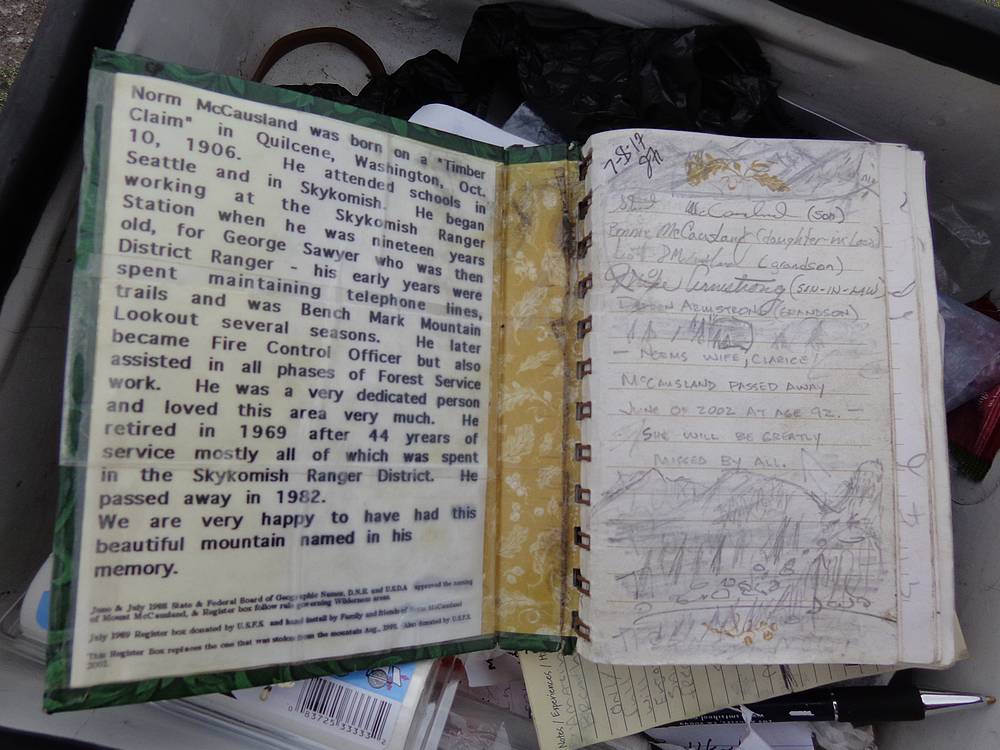 Norm McCausland was born on a "Timber
Claim" in Quilcene, Washington, Oct.
10, 1906. He attended schools in
Seattle and in Skykomish. He began
working at the Skykomish Ranger
Station when he was nineteen years
old, for George Sawyer who was then
District Ranger - his early years were
spent maintaining telephone lines,
trails and was Bench Mark Mountain
Lookout several seasons. He later
became Fire Control Officer but also
assisted in all phases of Forest Service
work. He was a very dedicated person
and loved this area very much. He
retired in 1969 after 44 yrears of
service mostly all of which was spent
in the Skykomish Ranger District. He
passed away in 1982.
We are very happy to have had this
beautiful mountain named in his
memory.
June & July 1988 State & Federal Board of Geographic Names, D.N.R. and U.S.D.A. approved the naming
of Mount McCausland, & Register box follow rule governing Wilderness areas.
July 1989 Register box donated by U.S.F.S. and hand install by Family and friends of Norm McCausland
This Register Box replaces the one that was stolen from the mountain Aug., Also donated by U.S.F.S.
2002.
7-8-17
McCausland (son)
Bonnie McCausland (daughter in Law)
(grandson)
Armstrong (SON-IN-LAW)
ARMSTRONG (GRANDSON)
- NORMS WIFE, CLARICE
McCAUSLAND PASSED AWAY
JUNE OF 2002 AT AGE 92. -
SHE WILL BE GREATLY
MISSED BY ALL.
Notes / Experiences /
ONLY
83725 33333